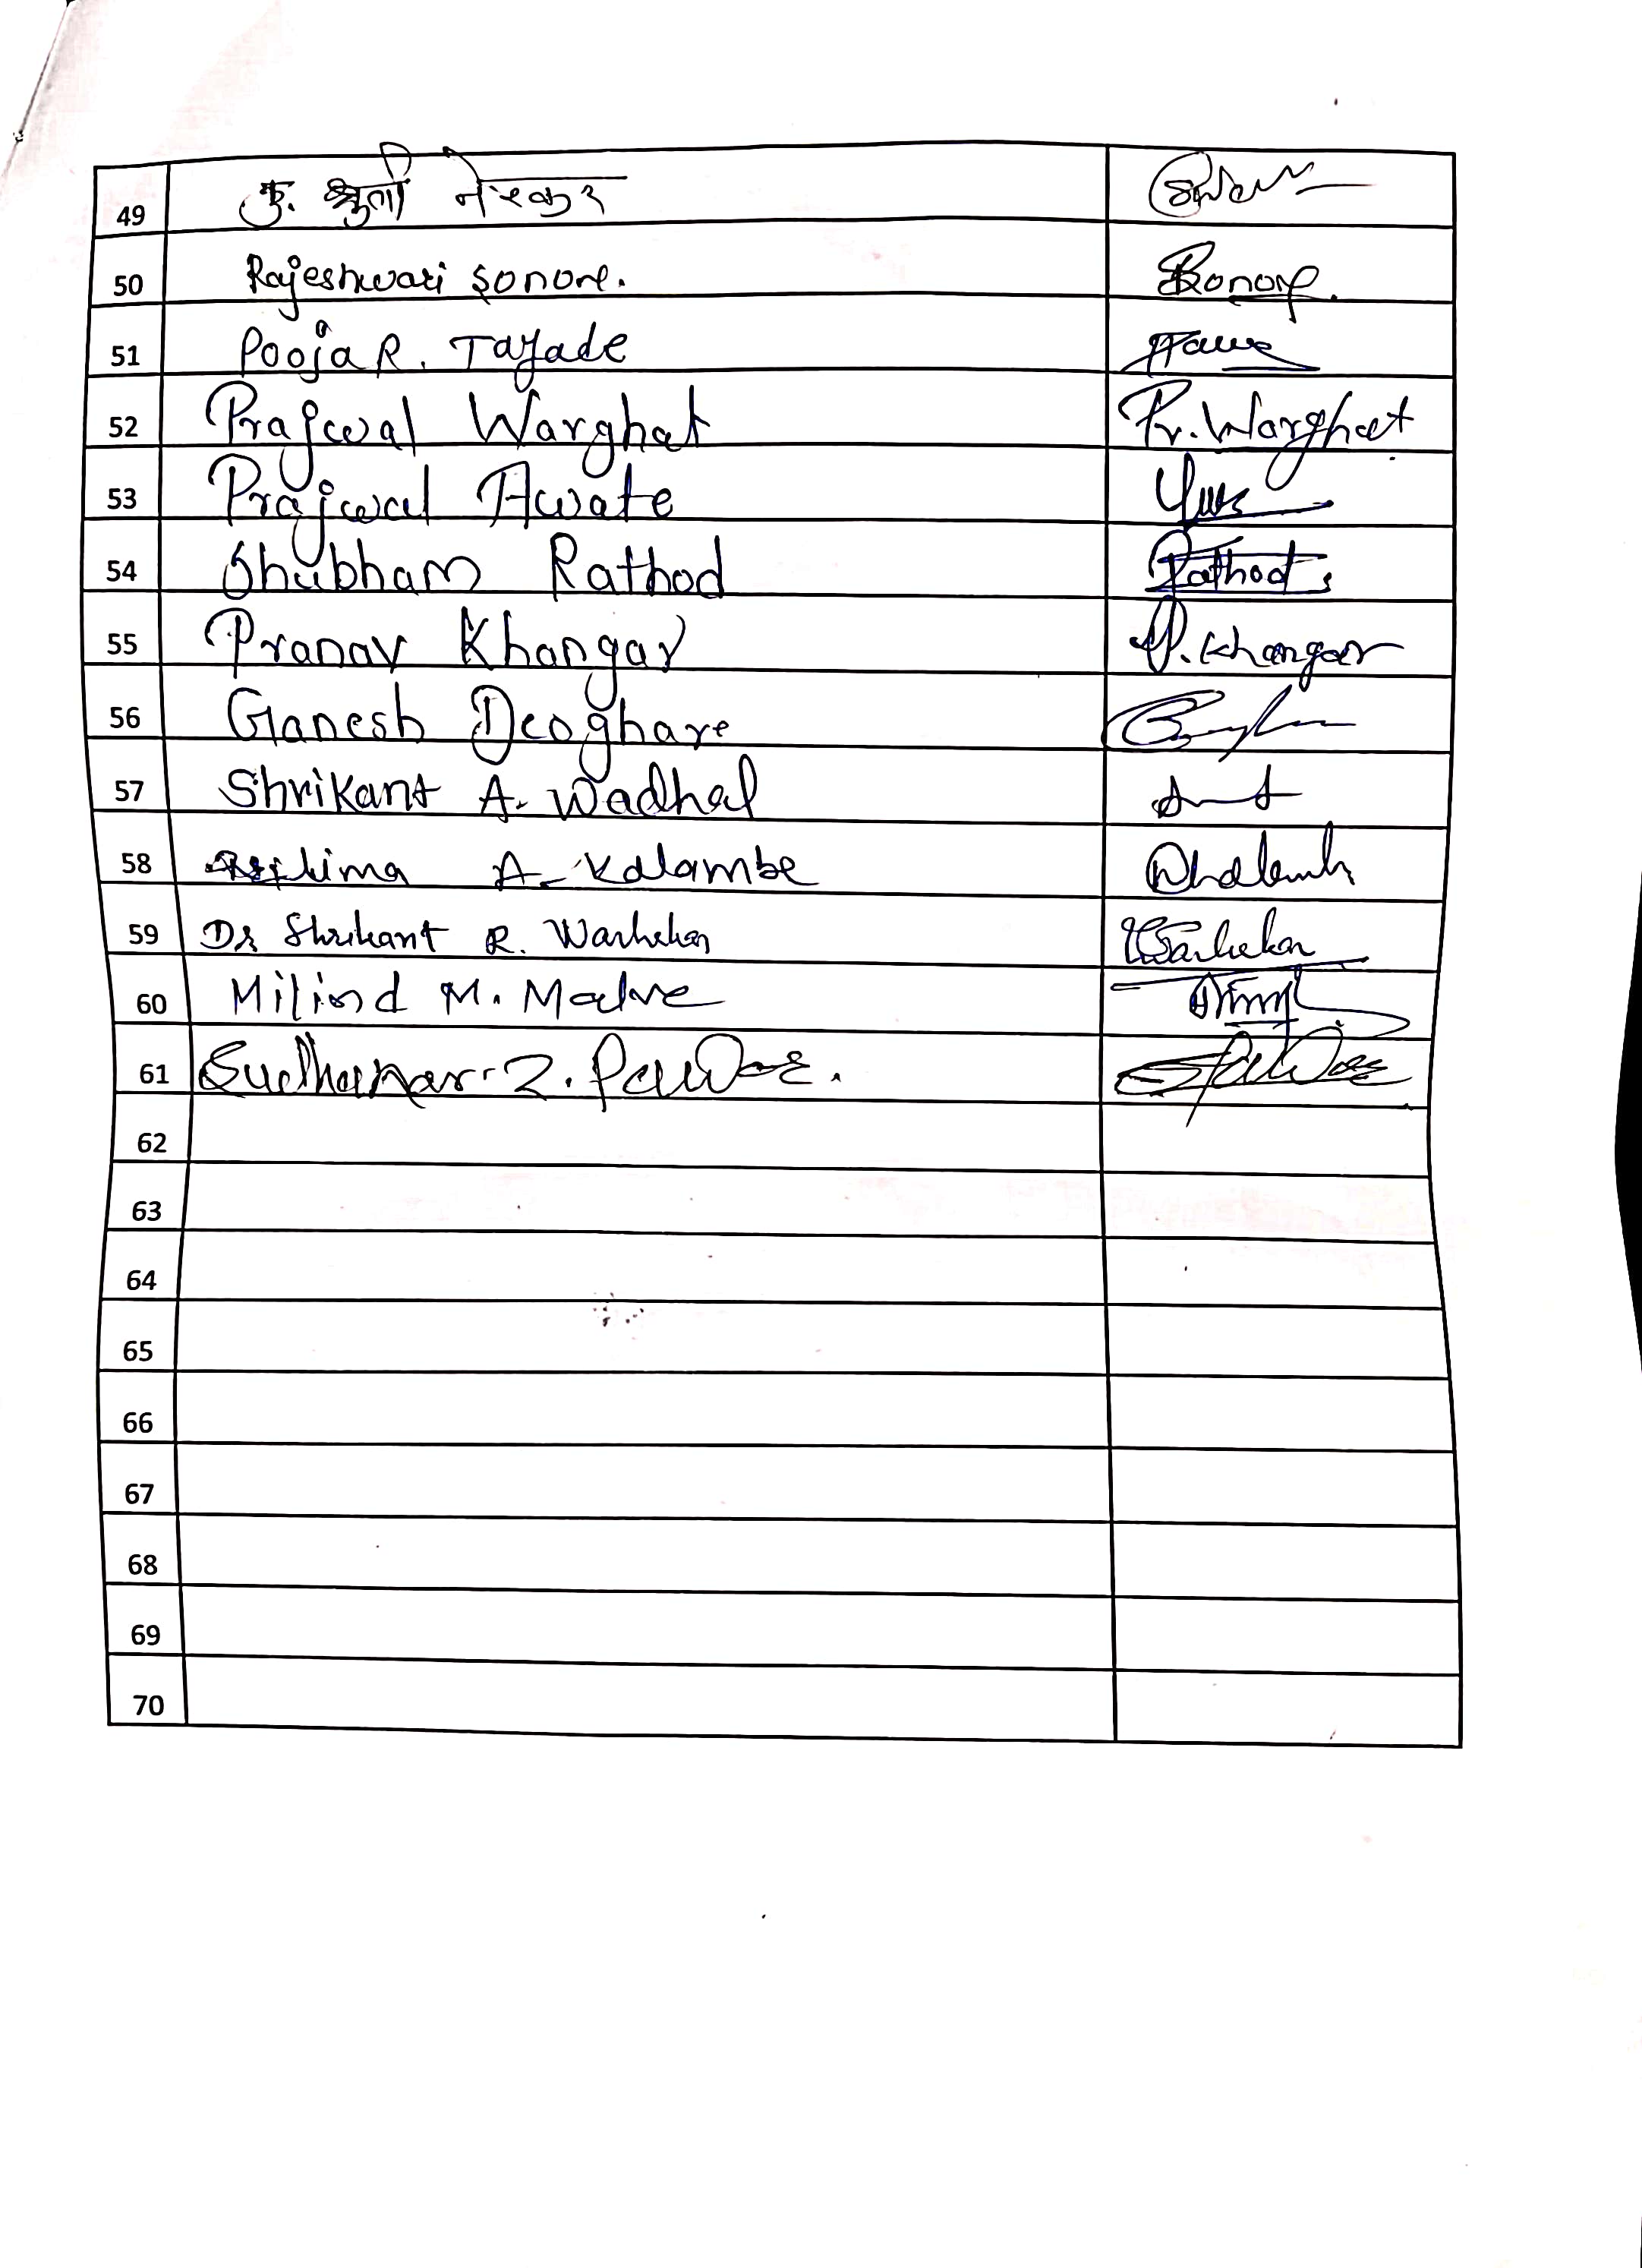 49 कु. श्रुती नेरकर
50 Rajeshwari Sonone. Sonone.
51 Pooja R. Tayade
52 Prajwal Warghat Pr. Warghat
53 Prajwal Awate
54 Shubham Rathod Rathod
55 Pranav Khangar P. Khangar
56 Ganesh Deoghare
57 Shrikant A. Wadhal
58 A. Kalambe
59 Dr Shrikant R. Warhekar Warhekar
60 Milind M. Malve
61 Sudhakar Z. Pawar. SPawar
62
63
64
65
66
67
68
69
70